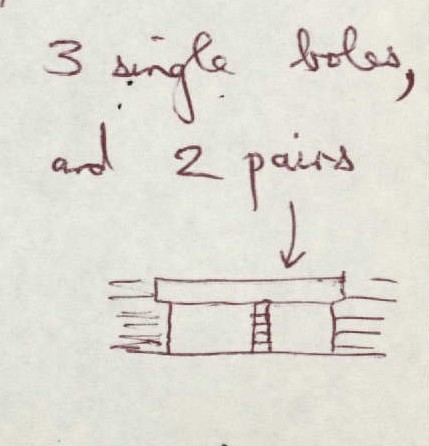 3 single boles,
and 2 pairs